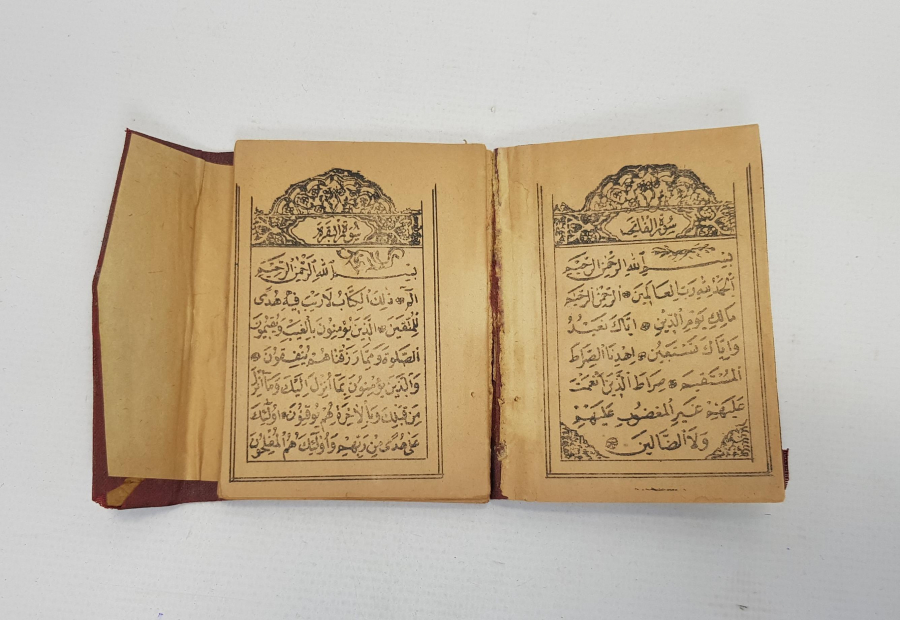 سورة الفاتحة
بسم الله الرحمن الرحيم
الحمد لله رب العالمين الرحمن الرحيم
مالك يوم الدين اياك نعبد
واياك نستعين اهدنا الصراط
المستقيم صراط الذين انعمت
عليهم غير المغضوب عليهم
ولا الضالين
سورة البقرة
بسم الله الرحمن الرحيم
الم ذلك الكتاب لا ريب فيه هدى
للمتقين الذين يؤمنون بالغيب ويقيمون
الصلوة ومما رزقناهم ينفقون
والذين يؤمنون بما انزل اليك وما انزل
من قبلك وبالاخرة هم يوقنون اولئك
على هدى من ربهم واولئك هم المفلحون